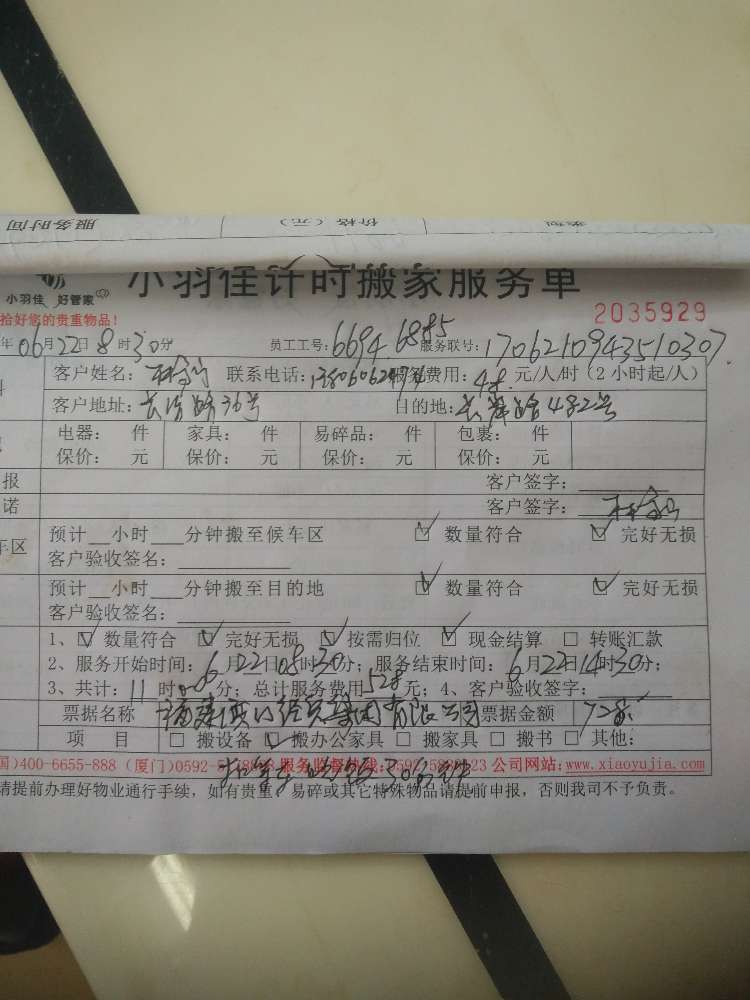 服务时间 价格（元） 类别
小羽佳 好管家 小羽佳计时搬家服务单
拾好您的贵重物品！ 2035929
年06月22日8时30分 员工工号：6694.6885 服务联号：1706210943510307.
客户姓名： 联系电话： 费用：48元/人/时（2小时起/人）
客户地址：长浩路36号 目的地：长岸路482号
电器： 件 家具： 件 易碎品： 件 包裹： 件
保价： 元 保价： 元 保价： 元 保价： 元
报 客户签字：
诺 客户签字：
车区 预计__小时___分钟搬至候车区 ☑ 数量符合 ☑ 完好无损
客户验收签名：
预计__小时___分钟搬至目的地 ☑ 数量符合 ☑ 完好无损
客户验收签名：
1、☑ 数量符合 ☑ 完好无损 ☑ 按需归位 ☑ 现金结算 □ 转账汇款
2、服务开始时间：6月22日08时30分；服务结束时间：6月22日14时30分；
3、共计：11时 分；总计服务费用528元；4、客户验收签字：
票据名称 福建厦门经贸集团有限公司 票据金额 728.
项 目 □ 搬设备 ☑ 搬办公家具 □ 搬家具 □ 搬书 □ 其他：
国)400-6655-888 (厦门)0592-5 服务监督热线： 23 公司网站：www.xiaoyujia.com
请提前办理好物业通行手续，如有贵重、易碎或其它特殊物品请提前申报，否则我司不予负责。